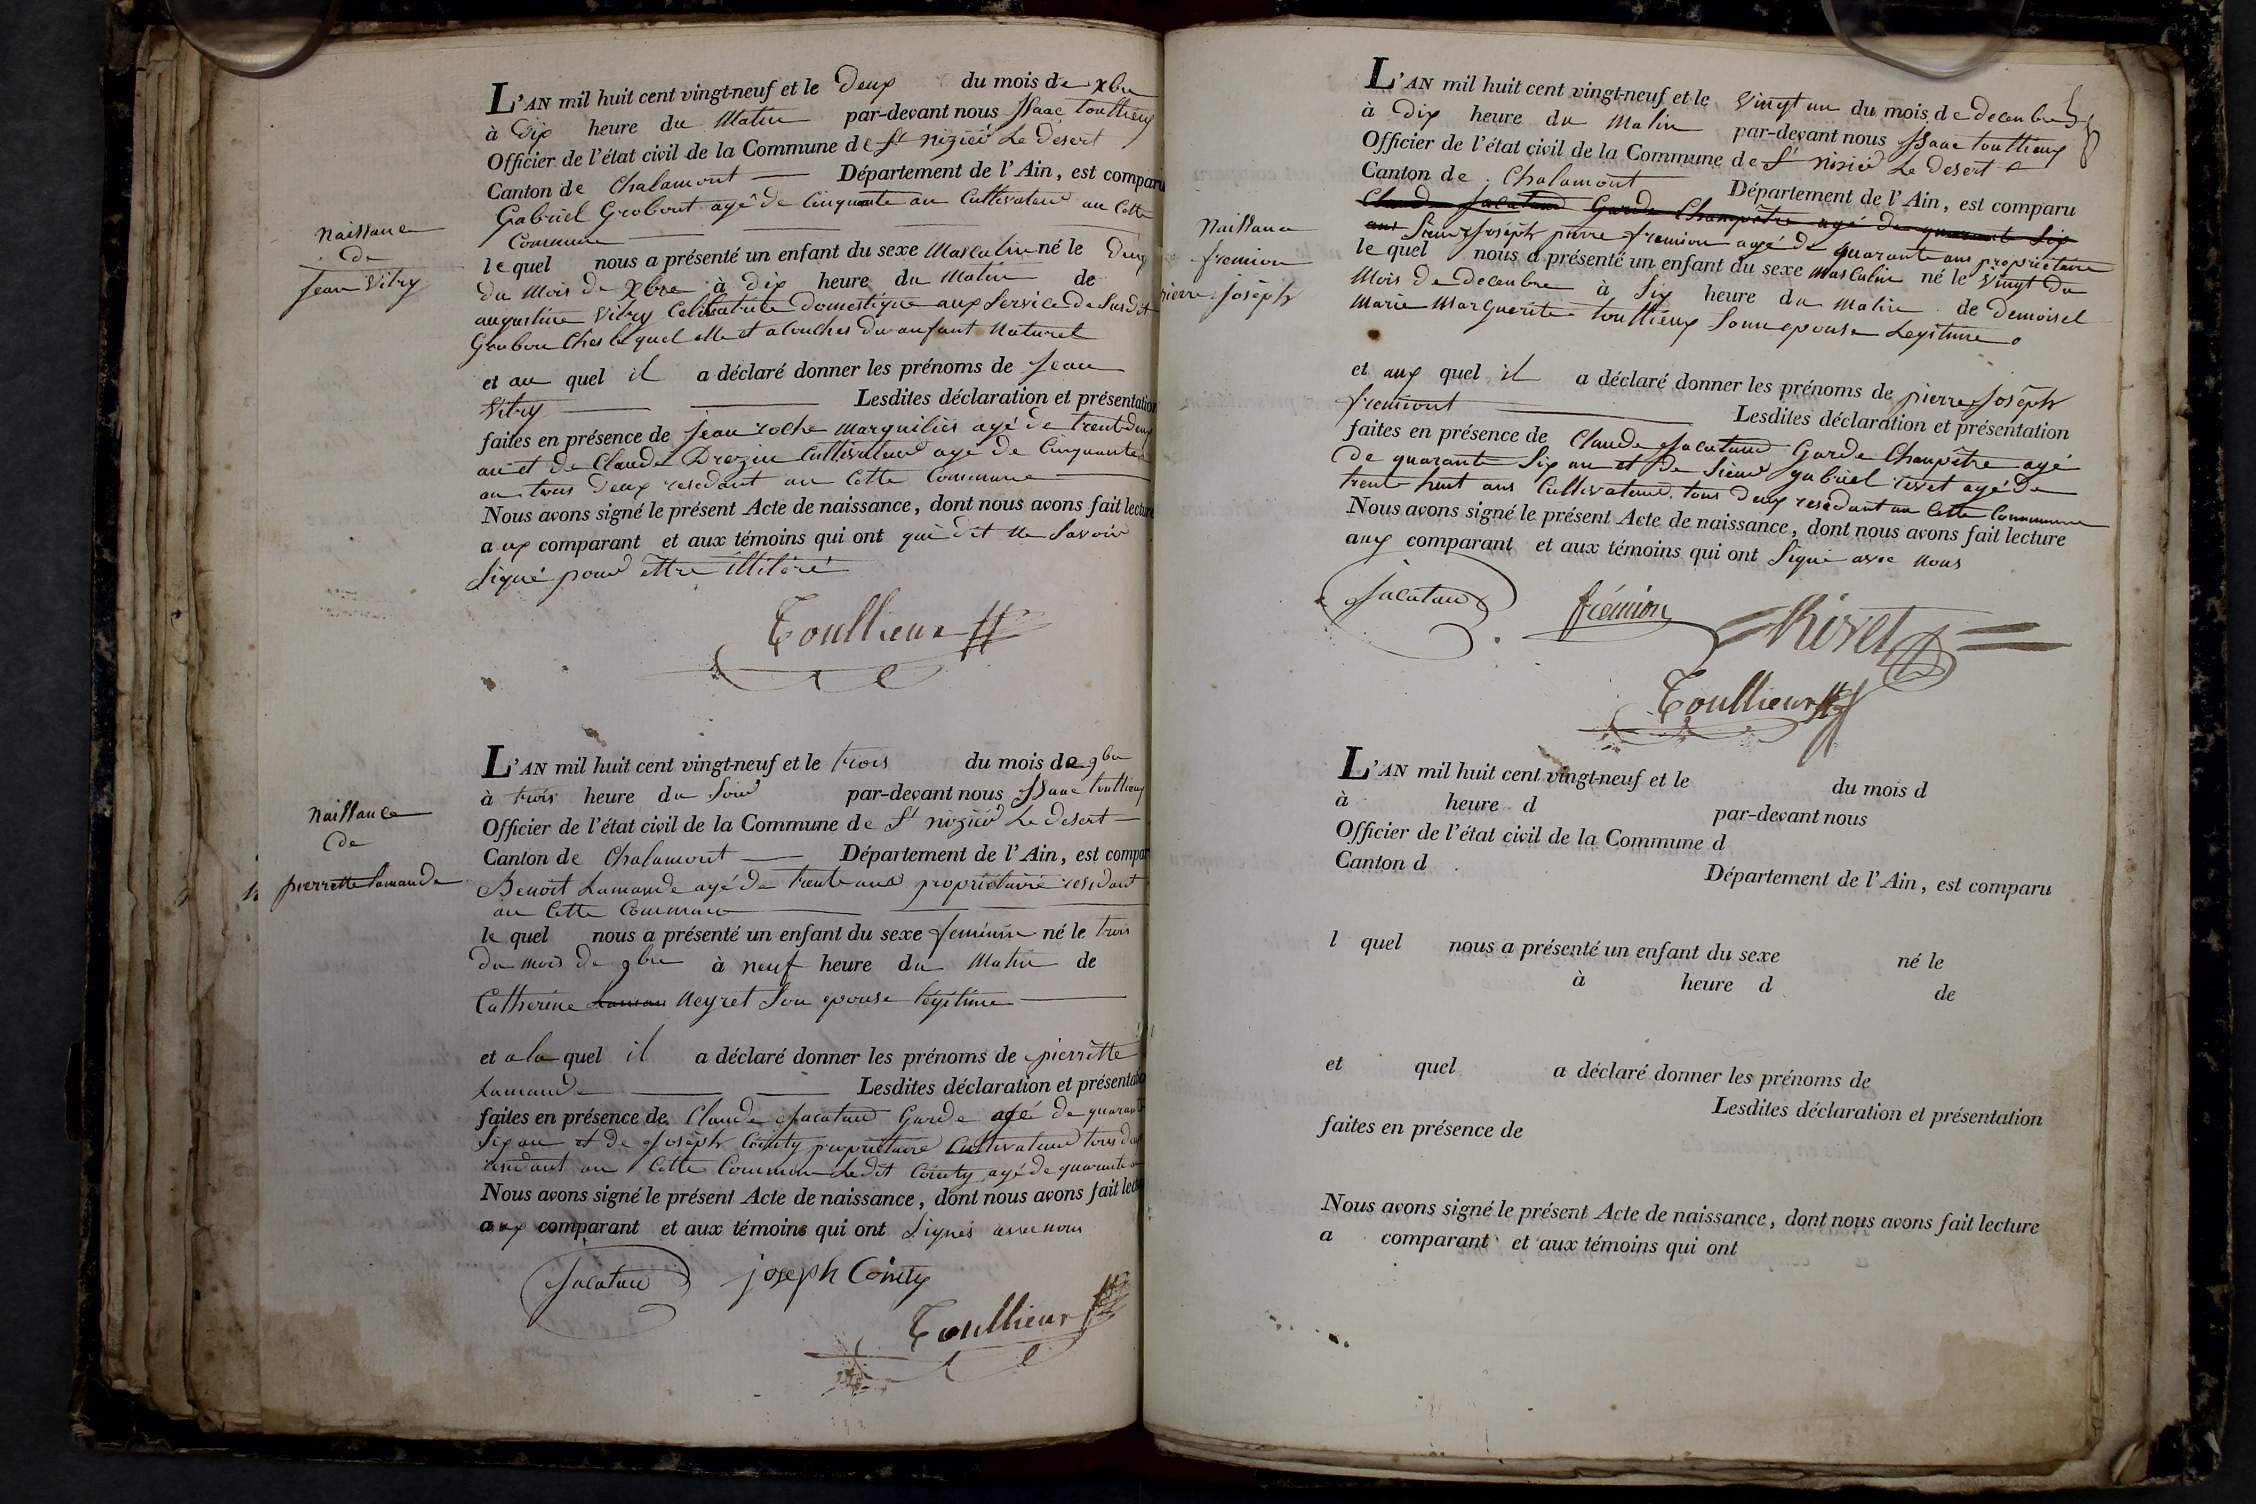 L'AN mil huit cent vingt-neuf et le Deux du mois de xbre
à Dix heure du Matin par-devant nous Isaac touttieux
Officier de l'état civil de la Commune de St nizied Le desert
Canton de Chalamont Département de l'Ain, est comparu
Gabriel Grobont agé de Cinquante an Cultivateur au Cette
Commune
Naissance
de
Jean Vitry
le quel nous a présenté un enfant du sexe Masculin né le Deux
du Mois de Xbre à dix heure du Matin de
augustine Vitry Celibatrite Domestique aux Service de Susdit
Grobon Ches lequel elle et acouches du anfant Naturel
et au quel il a déclaré donner les prénoms de Jean
Vitry Lesdites déclaration et présentation
faites en présence de Jean roche Marguilier agé de trente Deux
an et de Claude Drozin Cultivateur agé de Cinquante
an tous Deux residant an Cette Commune
Nous avons signé le présent Acte de naissance, dont nous avons fait lecture
aux comparant et aux témoins qui ont qui dit ne Savoir
Signé pour ettre illiteré
Toullieux
L'AN mil huit cent vingt-neuf et le trois du mois de 9bre
à trois heure du Soir par-devant nous Isaac touttieux
Officier de l'état civil de la Commune de St nizied Le desert
Canton de Chalamont Département de l'Ain, est compar
Benoit Lamande agé de trente ans propriétaire residant
an Cette Commune
Naissance
de
pierrette Lamande
le quel nous a présenté un enfant du sexe feminin né le trois
du mois de 9bre à neuf heure du Matin de
Catherine Neyret Son epouse legitime
et a la quel il a déclaré donner les prénoms de pierrette
Lamande Lesdites déclaration et présentatio
faites en présence de Claude Jacataud Garde agé de quarante
Six an et de Joseph Cointy propriétaire Cultivateur tous deux
residant an Cette Commune Ledit Cointy agé de quarante
Nous avons signé le présent Acte de naissance, dont nous avons fait lect
aux comparant et aux témoins qui ont Signés avec nous
Jacataud joseph Cointy
Toullieux
L'AN mil huit cent vingt-neuf et le Vingt un du mois de decembre
à Dix heure du Matin par-devant nous Isaac touttieux
Officier de l'état civil de la Commune de St nizied Le desert
Canton de Chalamont Département de l'Ain, est comparu
Claude Jacataud Garde Champêtre agé de quarante Six
ans Sieur Joseph pierre fremion agé de quarante ans propriétaire
Naissance
fremion
pierre joseph
le quel nous a présenté un enfant du sexe Masculin né le Vingt du
Mois de decembre à Six heure du Matin de demoisel
Marie Marguerite touttieux Sonn epouse Legitime
et aux quel il a déclaré donner les prénoms de pierre Joseph
fremiont Lesdites déclaration et présentation
faites en présence de Claude Jacataud Garde Champêtre agé
de quarante Six an et de Sieur gabriel revet agé de
trente huit ans Cultivateur tous deux residant an Cette Commune
Nous avons signé le présent Acte de naissance, dont nous avons fait lecture
aux comparant et aux témoins qui ont Signé avec nous
Jacataud frémion Rivet
Toullieux
L'AN mil huit cent vingt-neuf et le du mois d
à heure d par-devant nous
Officier de l'état civil de la Commune d
Canton d Département de l'Ain, est comparu
l quel nous a présenté un enfant du sexe né le
à heure d de
et quel a déclaré donner les prénoms de
Lesdites déclaration et présentation
faites en présence de
Nous avons signé le présent Acte de naissance, dont nous avons fait lecture
a comparant et aux témoins qui ont